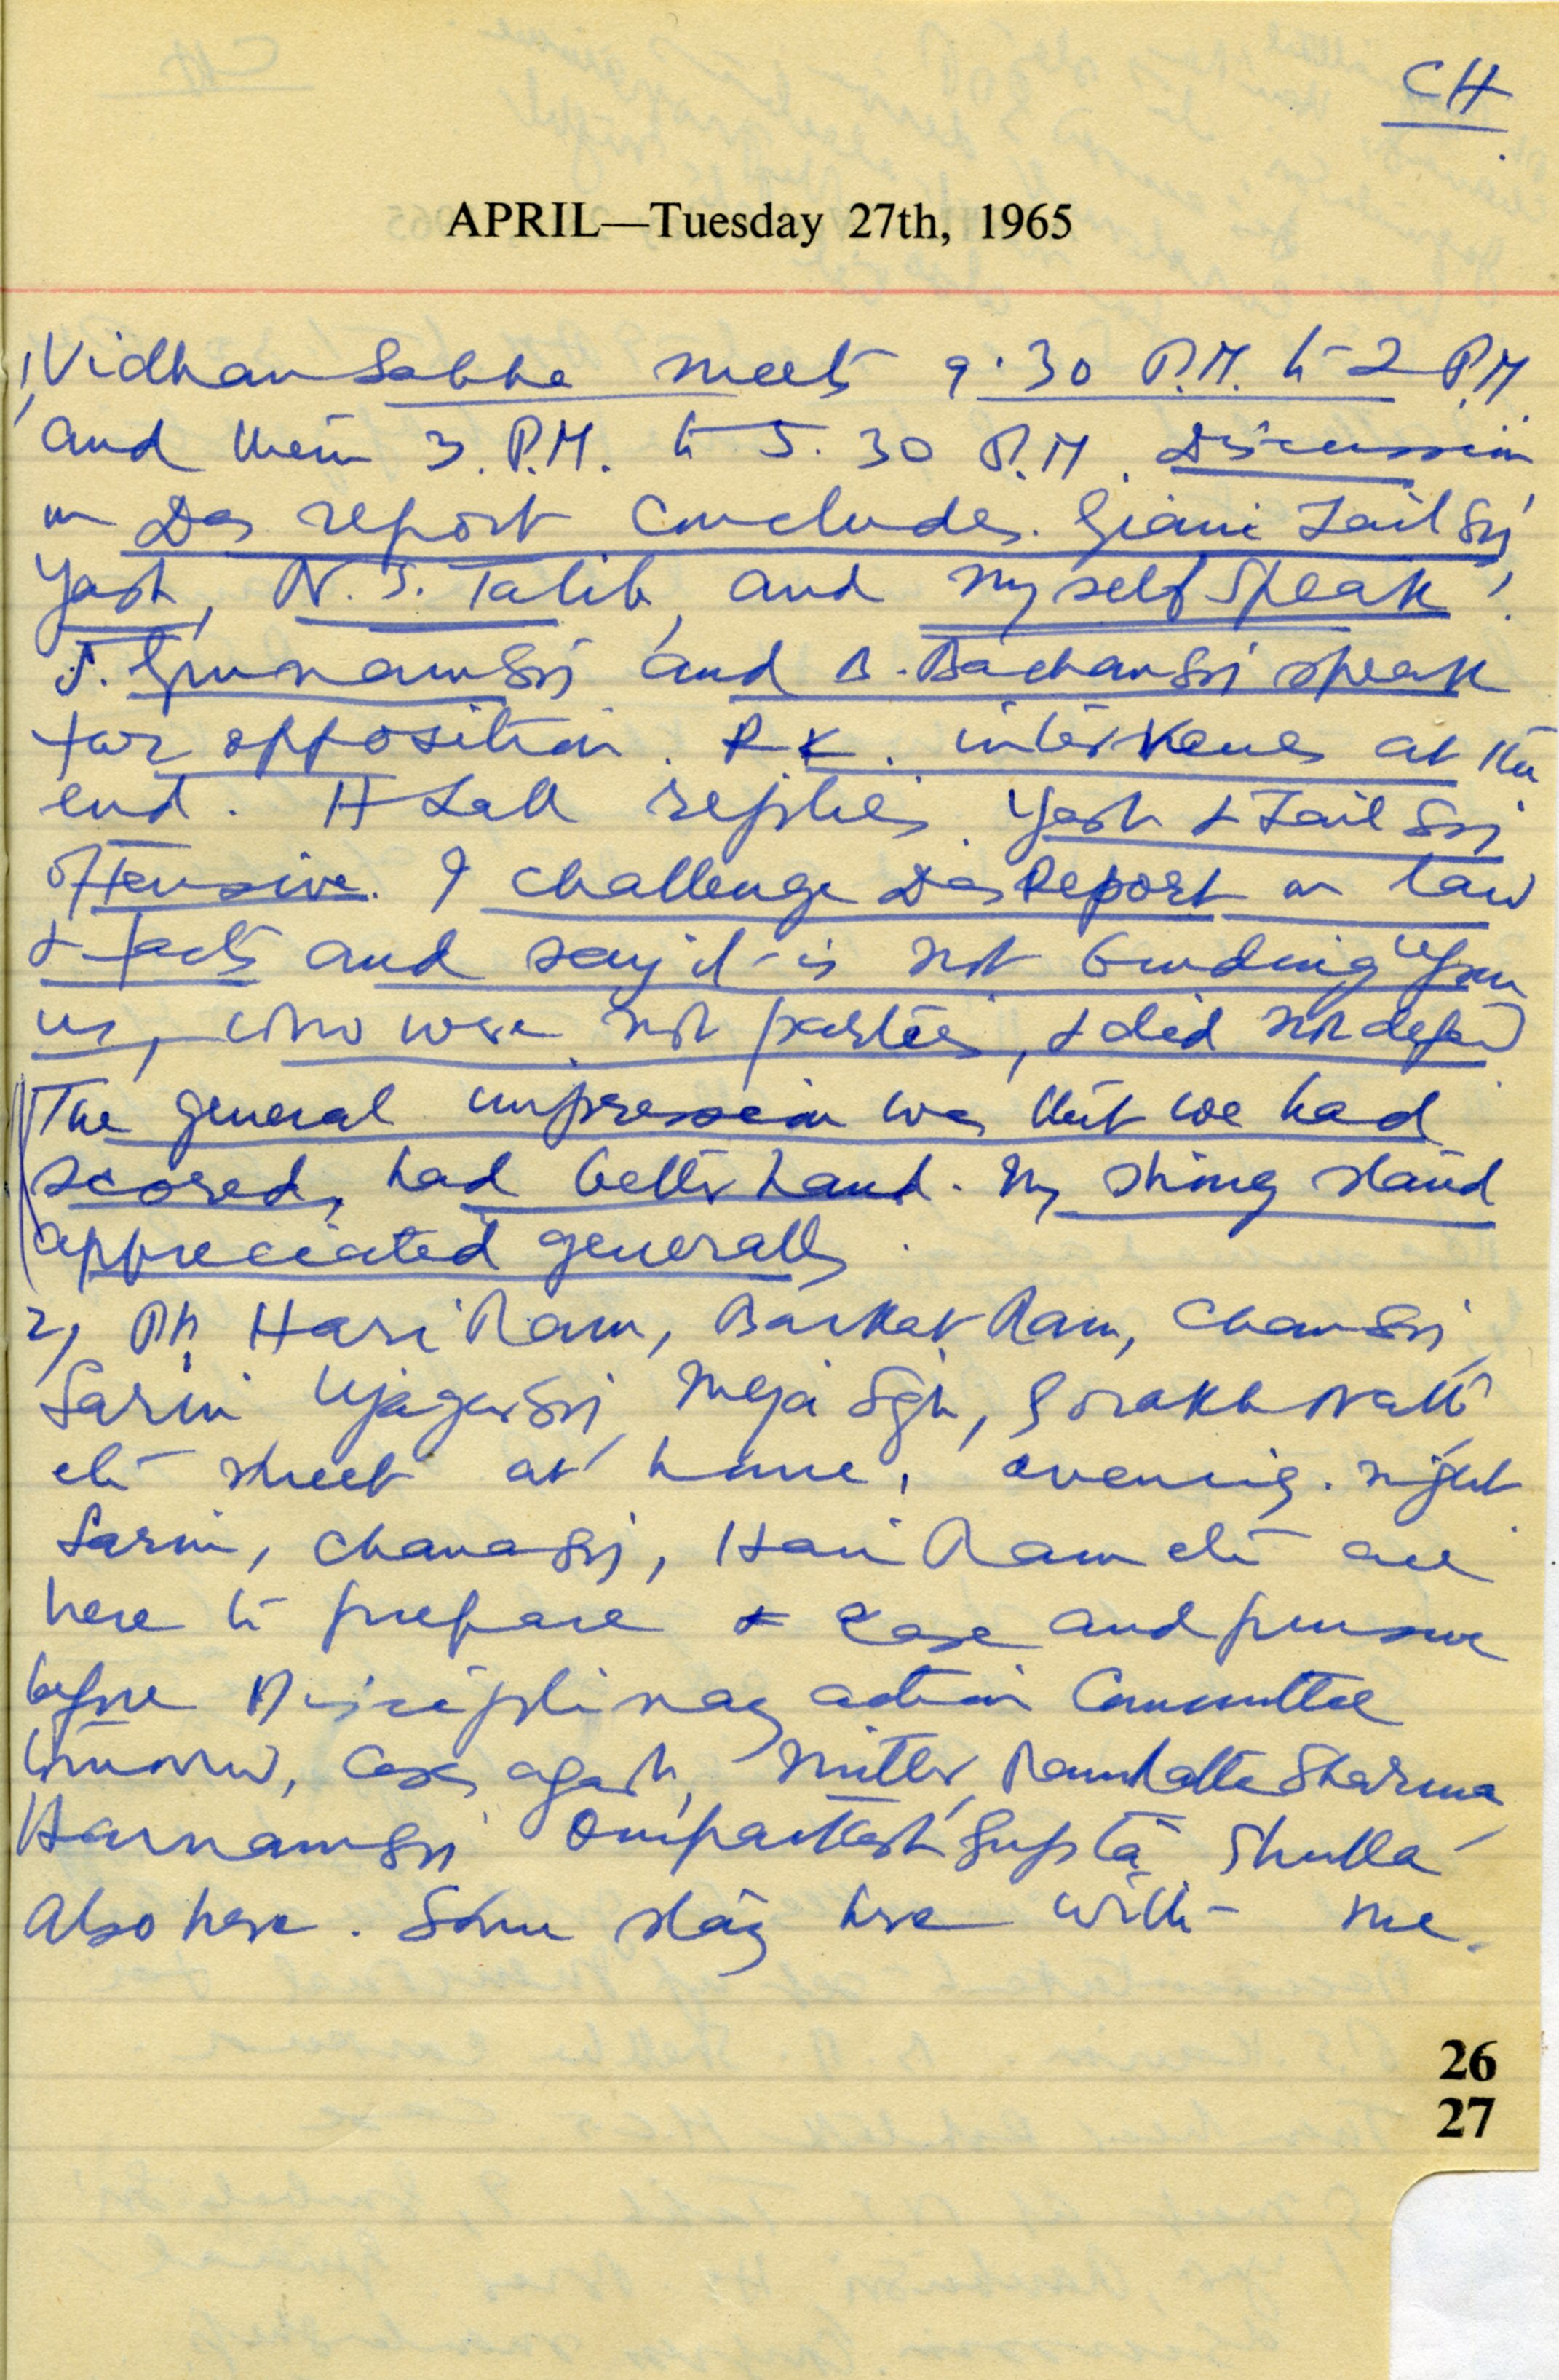 CH
APRIL—Tuesday 27th, 1965
1) Vidhan Sabha meets 9.30 P.M. to 2 P.M.
and then 3. P.M. to 5.30 P.M. Discussion
on Das report concludes. Giani Zail Sgi,
Yash, N.S. Talib, and myself speak.
S. Gurnam Sgi and B. Bachan Sgi speak
for opposition. R K. intervenes at the
end. H Lall replies. Yash & Zail Sgi
offensive. I challenge Das Report on law
& facts and say it is not binding upon
us, who were not parties, & did not defend
The general impression was that we had
scored, had better hand. My strong stand
appreciated generally.
2) Pt. Hari Ram, Barkat Ram, Chanan Sgi,
Sarin, Ujagar Sgi, Meja Sgh, Gorakh Nath
etc meet at home, evening. night
Sarin, Chanan Sgi, Hari Ram etc are
here to prepare case and pursue
before Disciplinary action Committee
tomorrow, case agash, Mittar, Ramdatta Sharma,
Harnam Sgi Omparkash Gupta, Shukla
Also here. Some stay here with me.
26
27